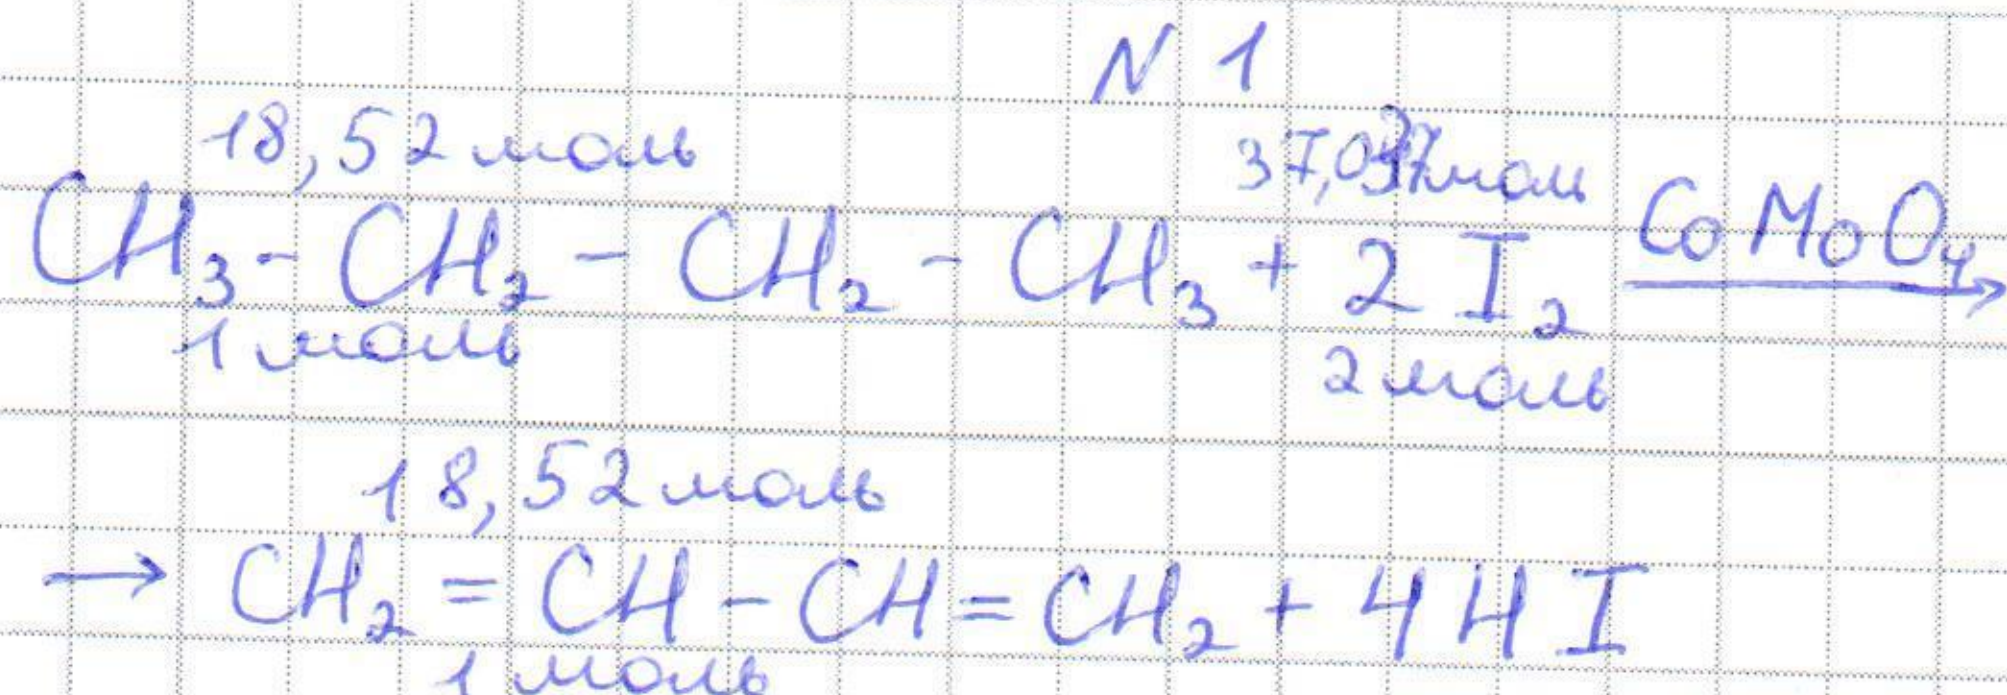 N 1
18,52 моль 37,037 моль
CH₃ - CH₂ - CH₂ - CH₃ + 2 I₂ CoMoO₄ →
1 моль 2 моль
18,52 моль
→ CH₂ = CH - CH = CH₂ + 4 HI
1 моль